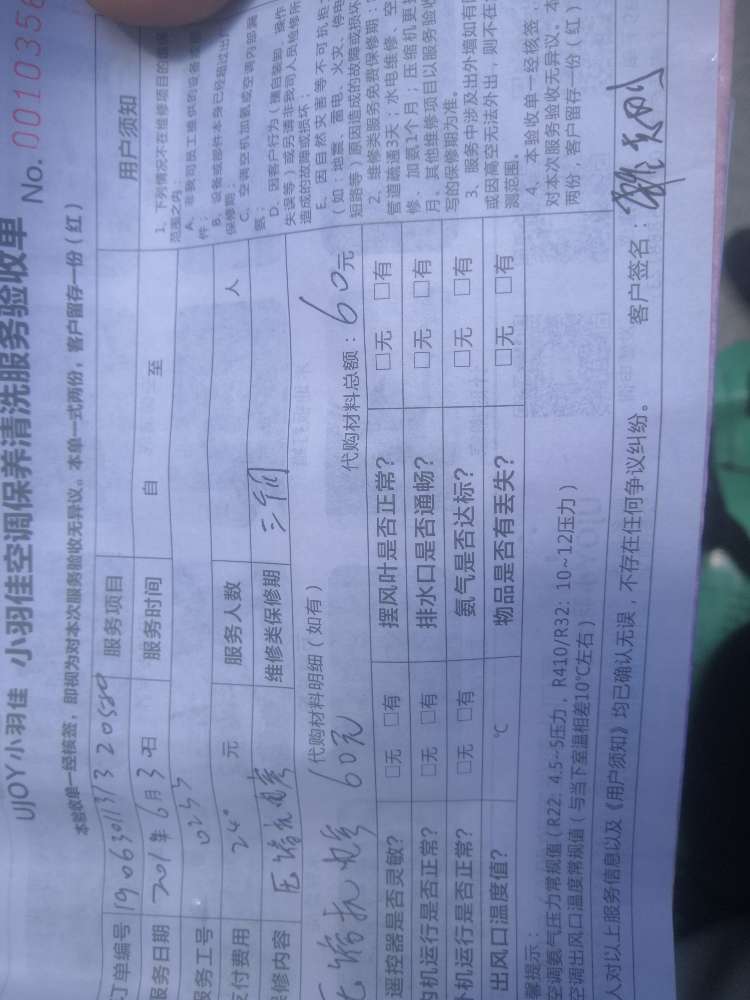 UJOY小羽佳 小羽佳空调保养清洗服务验收单 No. 0010356
本验收单一经核签，即视为对本次服务验收无异议。本单一式两份，客户留存一份（红）
订单编号 服务项目
服务日期 6月3日 服务时间 自 至
服务工号 0255
支付费用 240 元 服务人数 人
维修内容 压缩机电容 维修类保修期 三个月
压缩机电容 60元（代购材料明细（如有） 代购材料总额：60元
遥控器是否灵敏？ □无 □有 摆风叶是否正常？ □无 □有
内机运行是否正常？ □无 □有 排水口是否通畅？ □无 □有
外机运行是否正常？ □无 □有 氨气是否达标？ □无 □有
出风口温度值？ ℃ 物品是否有丢失？ □无 □有
用户须知
1、下列情况不在维修项目的
范围之内：
A、非我司员工提供的设备
件；
B、设备或部件本身已经超过
保修期；
C、空调空机加氨或空调内部漏
氨；
D、因客户行为（擅自装卸、操作
失误等）或另请非我司人员检修所
造成的故障或损坏；
E、因自然灾害等不可抗拒
（如：地震、雷电、火灾、停电
短路等）原因造成的故障或损坏
2、维修类服务免费保修期：
管道疏通3天；水电维修、空
修、加氨1个月；压缩机更换
月，其他维修项目以服务验收
写的保修期为准。
3、服务中涉及出外墙如有
或因高空无法外出，则不在
测范围。
4、本验收单一经核签，
对本次服务验收无异议。本
两份，客户留存一份（红）
馨提示：
空调氨气压力常规值（R22：4.5~5压力，R410/R32：10~12压力）
空调出风口温度常规值（与当下室温相差10℃左右）
人对以上服务信息以及《用户须知》均已确认无误，不存在任何争议纠纷。 客户签名：